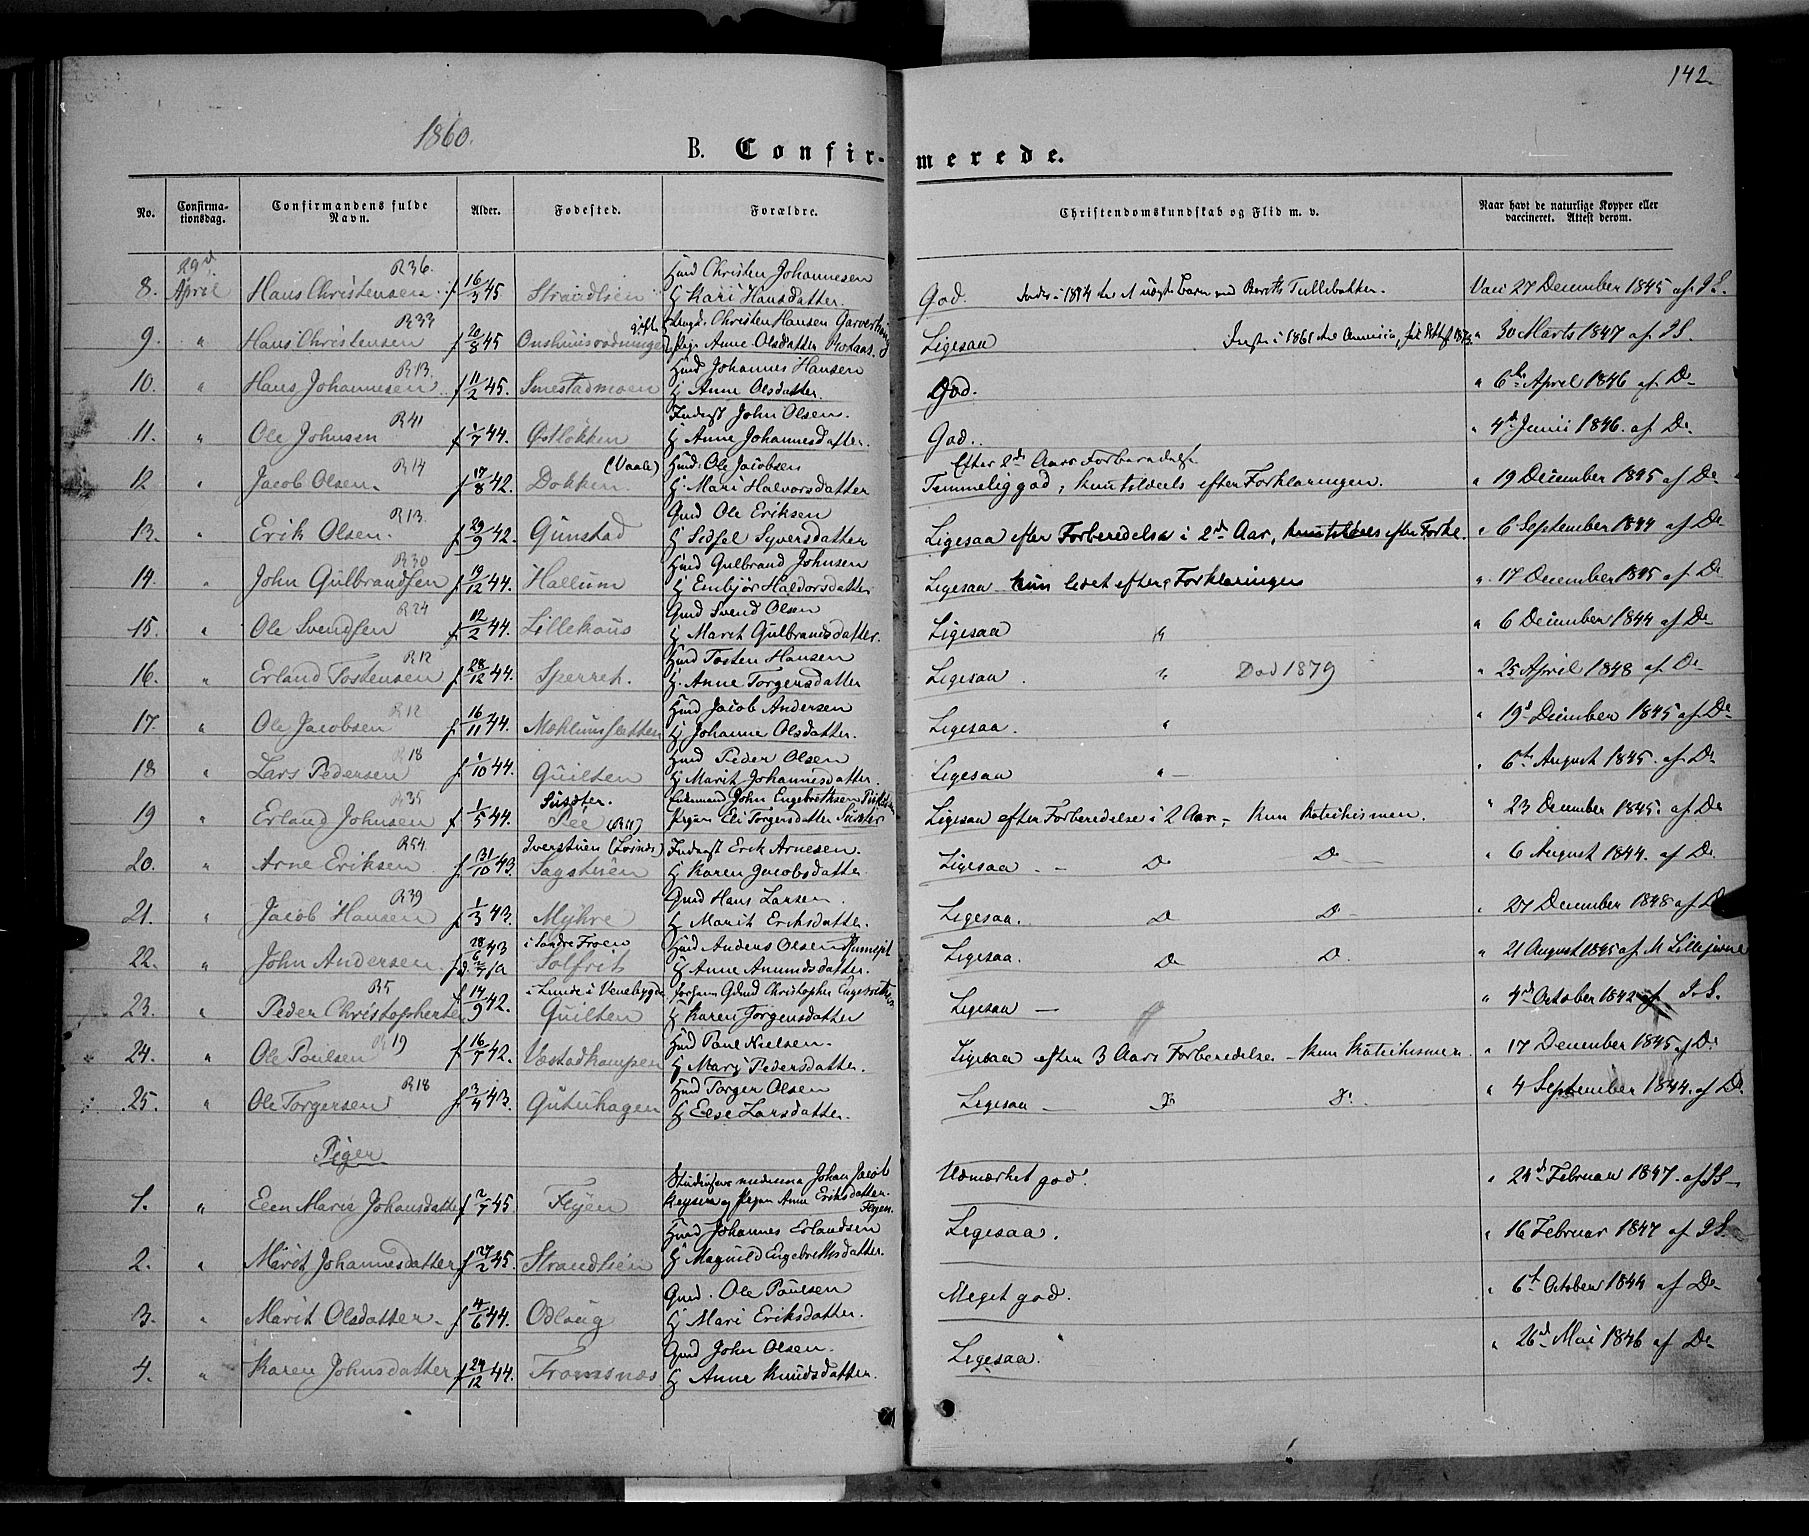 142.
1860.
B. Confirmerede.
No. Confirmationsdag. Confirmandens fulde Navn. Alder. Fødested. Forældre. Christendomskundskab og Flid m. v. Naar havt de naturlige Kopper eller vaccineret. Attest derom.
29d R36. Hmd Christen Johannesen
8. April Hans Christensen f 16/3 45 Strandlien H Kari Hansdatter. God. Vacc 27 December 1845 af J S.
R33 Christen Hansen
9. " Hans Christensen f 20/8 45 Pige Anne Olsdatter Ligesaa " 30 Marts 1847 af J S.
R13. Hmd Johannes Hansen
10. " Hans Johannesen f 11/2 45. Smestadmoen H Anne Olsdatter. God. " 6te April 1846 af Do
R41 Inderst John Olsen.
11. " Ole Johnsen f 1/7 44. Østløkken H Anne Johannesdatter. God. " 4de Junii 1846 af Do
R14 (Vaale) Hmd. Ole Jacobsen Efter 2de Aars Forberedelse
12 " Jacob Olsen. f 17/8 42. Dokken. H Mari Halvorsdatter Temmelig god, kun tildeels efter Forklaringen. " 19 December 1845 af Do
R13. Gmd Ole Eriksen
13. " Erik Olsen. f 29/9 42. Gunstad H Sidsel Syversdatter Ligesaa efter Forberedelse i 2de Aar, kun tildeels efter Forkl. " 6 September 1844 af Do
R30 Hmd Gulbrand Johnsen
14. " John Gulbrandsen f 19/12 44. Hallum H Embjør Haldorsdatter Ligesaa kun lidet efter Forklaringen " 17 December 1845 af Do
R24 Gmd Svend Olsen
15. " Ole Svendsen f 12/2 44. Lillehaus H Marit Gulbrandsdatter. Ligesaa " " 6 December 1844 af Do
R12 Hmd Tosten Hansen
16. " Erland Tostensen f 28/12 44. H. Anne Torgersdatter Ligesaa. " Død 1879 " 25 April 1848 af Do
R12 Hmd Jacob Andersen
17. " Ole Jacobsen f 16/11 44. H Johanne Olsdatter. Ligesaa. " " 19d December 1845 af Do
R18 Hmd Peder Olsen
18 " Lars Pedersen f 1/10 44. Quilten H Marit Johannesdatter. Ligesaa " " 6te August 1845. af Do
R35 John Engebrethsen
19 " Erland Johnsen f 1/5 44. Pigen Eli Torgersdatter Ligesaa efter Forberedelse i 2 Aar, Kun Katechismen. " 23 December 1845. af Do
R54 Iverstuen Inderst Erik Arnesen.
20. " Arne Eriksen f 31/10 43. Sagstuen H Karen Jacobsdatter. Ligesaa Do Do " 6 August 1844. af Do
R39 Gmd Hans Larsen.
21. " Jacob Hansen f 1/3 43. Myhre H Marit Eriksdatter. Ligesaa. Do Do " 27 December 1848 af Do
i Søndre Froen Hmd Anders Olsen
22. " John Andersen f 28/6 43 Solfrit H Anne Amundsdatter. Ligesaa. Do Do " 21 August 1845 af
R5 i Lunde i Venebygde Gmd Christopher Engebrethsen
23. " Peder Christophersen f 14/9 42. Quilten H Karen Torgersdatter Ligesaa " 4de October 1842 af J. S.
R19 Hmd Poul Nielsen.
24. " Ole Poulsen f 16/7 42. Væstadkampen H Mari Pedersdatter. Ligesaa efter 3 Aars Forberedelse Kun Katechismen. " 17 December 1845 af Do
R18 Hmd Torger Olsen
25. " Ole Torgersen f 3/4 43. Gutuhagen H Else Larsdatter. Ligesaa Do Do " 4 September 1844. af Do
Piger
Johan Jacob
1. " Elen Marie Johansdatter f 2/7 45 Flyen Pigen Anne Eriksdatter. Flyen. Udmærket god. " 24de Februar 1847. af J S
Hmd Johannes Erlandsen
2. " Marit Johannesdatter f 27/2 45. Strandlien H Magnild Engebrethsdatter. Ligesaa. " 16 Februar 1847 af J S.
Gmd. Ole Poulsen
3. " Marit Olsdatter. f 4/6 44. Odloug H Mari Eriksdatter. Meget god. " 6t October 1844 af Do
Gmd John Olsen.
4. " Karen Johnsdatter f 24/12 44. Tromsnæs H Anne Knudsdatter. Ligesaa. " 26d Mai 1846 af Do